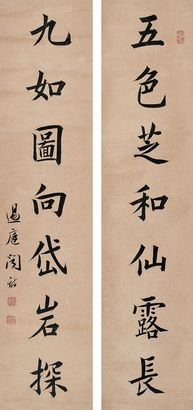 五色芝和仙露長
九如圖向岱岩探
溫庭閔敘